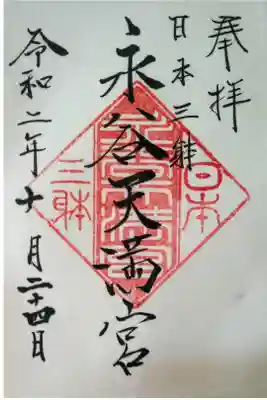 奉拝
日本三躰
永谷天満宮
令和二年十月二十四日
日本
三躰